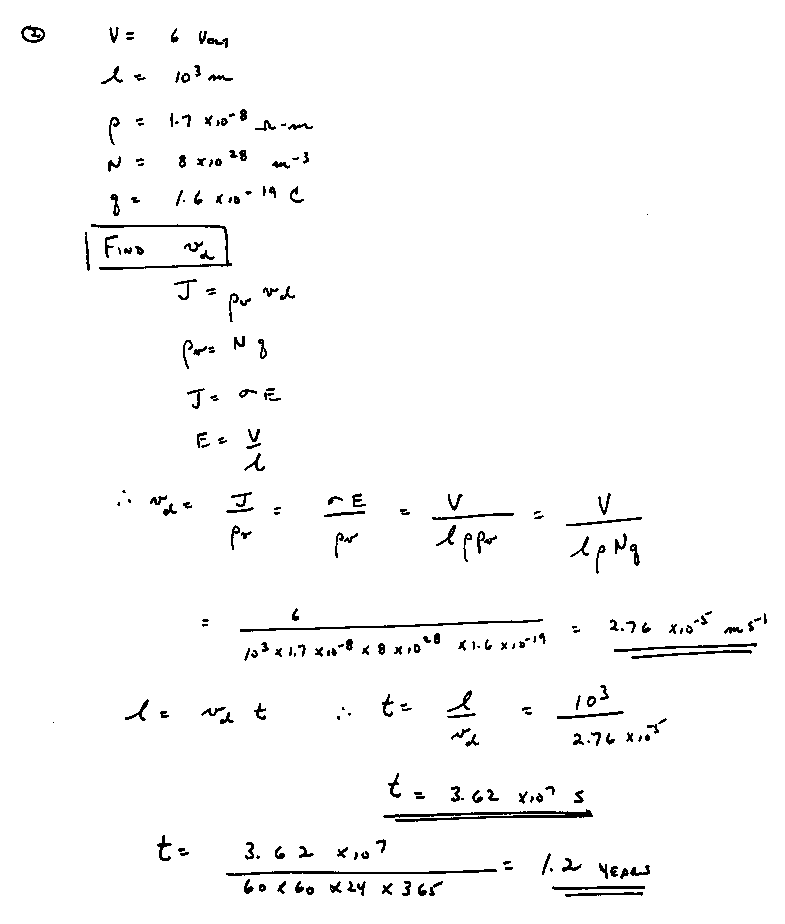 ② V = 6 Volts
l = 10³ m
ρ = 1.7 × 10⁻⁸ Ω-m
N = 8 × 10²⁸ m⁻³
q = 1.6 × 10⁻¹⁹ C
FIND v_d
J = ρ_v v_d
ρ_v = N q
J = σ E
E = V / l
∴ v_d = J / ρ_v = σ E / ρ_v = V / l ρ ρ_v = V / l ρ N q
= 6 / 10³ × 1.7 × 10⁻⁸ × 8 × 10²⁸ × 1.6 × 10⁻¹⁹ = 2.76 × 10⁻⁵ m s⁻¹
l = v_d t ∴ t = l / v_d = 10³ / 2.76 × 10⁻⁵
t = 3.62 × 10⁷ s
t = 3.62 × 10⁷ / 60 × 60 × 24 × 365 = 1.2 YEARS